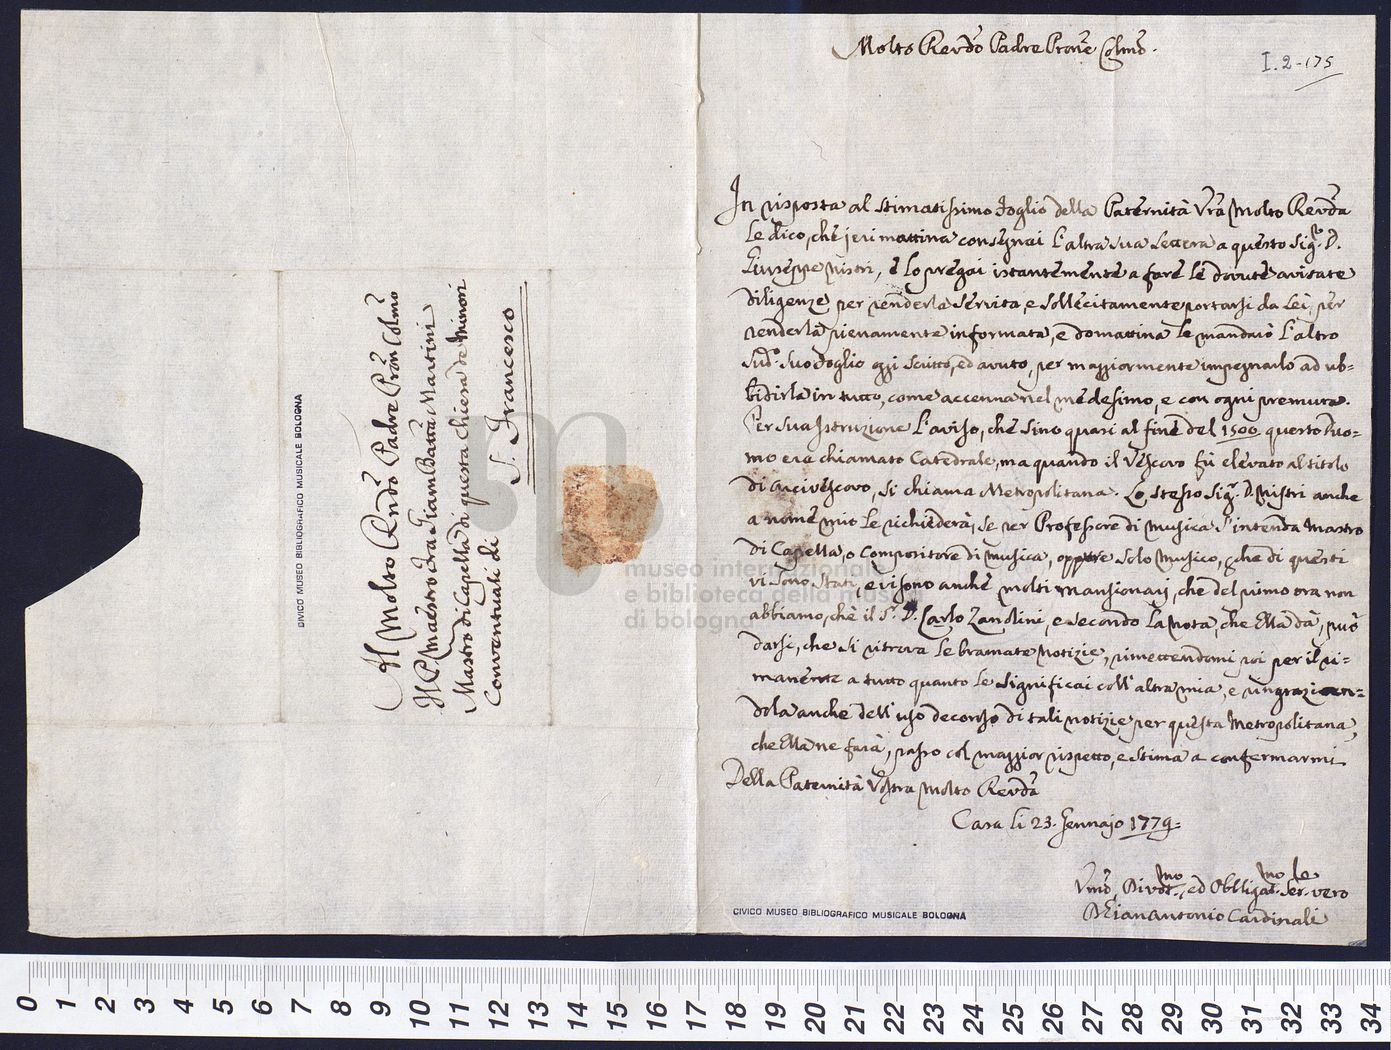 Molto Revdo Padre Prone Colmo.
I. 2-175
In risposta al stimatissimo foglio della Paternità Vra Molto Revda
Le dico, che jeri mattina consegnai l'altra sua lettera a questo Sigr. D.
Giuseppe Nistri, e lo pregai istantemente a fare le dovute avisate
diligenze per renderla servita, e sollecitamente portarsi da Lei, per
renderla pienamente informata, e domattina le mandarò l'altro
sudo. suo foglio oggi scritto, ed avuto, per maggiormente impegnarlo ad ub=
bidirla in tutto, come accenna nel medesimo, e con ogni premura.
Per sua istruzione l'aviso, che sino quasi al fine del 1500 questo Duo=
mo era chiamato Catedrale, ma quando il Vescovo fù elevato al titolo
di Arcivescovo, si chiama Metropolitana. Lo stesso Sigr. D. Nistri anche
a nome mio le richiederà, se per Professore di musica s'intenda Mastro
di Capella, o Compositore di musica, oppure solo Musico, che di questi
vi sono stati, e vi sono anche molti Mansionarj, che del primo ora non
abbiamo, che il Sr. D. Carlo Zanolini, e secondo la nota, che Ella dà, può
darsi, che si ritrova le bramate notizie, rimettendomi poi per il ri=
manente a tutto quanto le significai coll'altra mia, e ringrazian=
dola anche dell'uso decoroso di tali notizie per questa Metropolitana,
che Ella ne farà, passo col maggior rispetto, e stima a confermarmi
Della Paternità Vostra Molto Revda
Casa li 23. Gennajo 1779=
Umo, Divotmo, ed Obbligatmo Serle vero
D Gianantonio Cardinali
CIVICO MUSEO BIBLIOGRAFICO MUSICALE BOLOGNA
Al Molto Rndo Padre Pron Colmo
Il P. Maestro Fra Giambatta Martini
Mastro di Capella di questa Chiesa de Minori
Conventuali di
S. Francesco
CIVICO MUSEO BIBLIOGRAFICO MUSICALE BOLOGNA
museo internazionale
e biblioteca della musica
di bologna
0 1 2 3 4 5 6 7 8 9 10 11 12 13 14 15 16 17 18 19 20 21 22 23 24 25 26 27 28 29 30 31 32 33 34